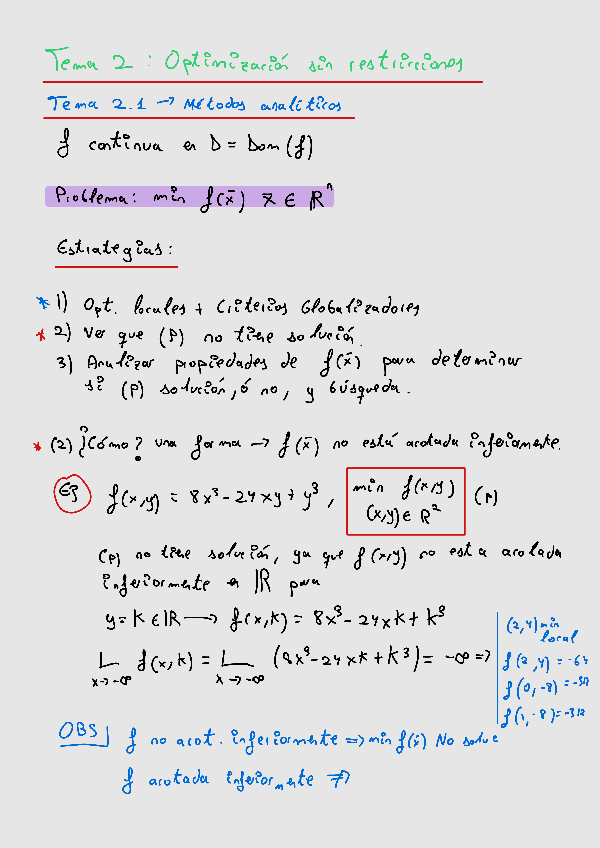 Tema 2 : Optimización sin restricciones
Tema 2.1 → Métodos analíticos
f continua en D = Dom(f)
Problema: min f(x̄) x̄ ∈ ℝⁿ
Estrategias:
* 1) Opt. locales + Criterios Globalizadores
* 2) Ver que (P) no tiene solución.
3) Analizar propiedades de f(x̄) para determinar
si (P) solución, ó no, y búsqueda.
* (2) ¿Cómo? una forma → f(x̄) no está acotada inferiormente.
Ej f(x,y) = 8x³ - 24xy + y³, min f(x,y) (P)
(x,y) ∈ ℝ²
(P) no tiene solución, ya que f(x,y) no esta acotada
inferiormente en ℝ para
y = K ∈ ℝ → f(x,K) = 8x³ - 24xK + K³
L f(x,K) = L (8x³ - 24xK + K³) = -∞ =>
x → -∞ x → -∞
(2,4) min
local
f(2,4) = -64
f(0,-8) = -512
f(1,-8) = -312
OBS f no acot. inferiormente => min f(x̄) No soluc
f acotada inferiormente ≠>